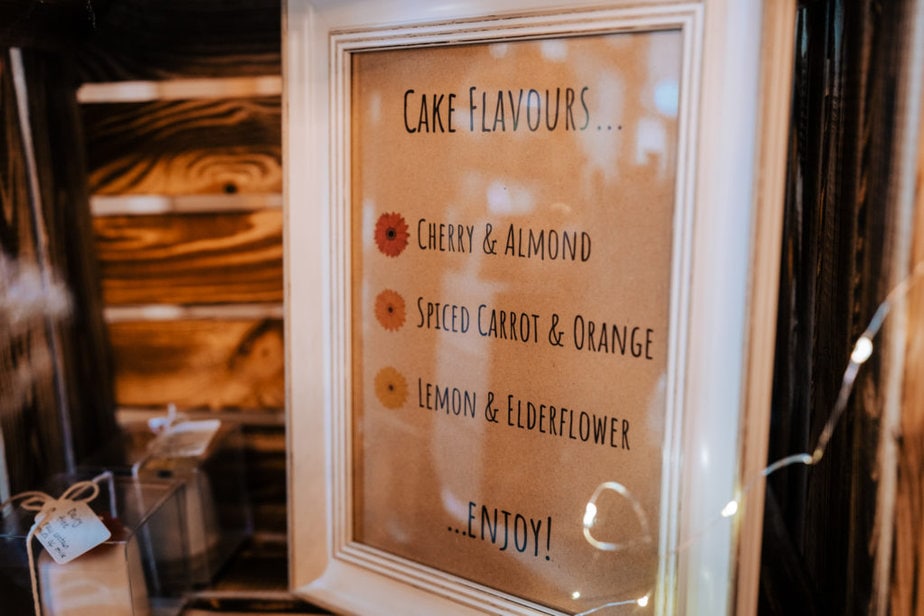 Cake Flavours...
Cherry & Almond
Spiced Carrot & Orange
Lemon & Elderflower
...Enjoy!